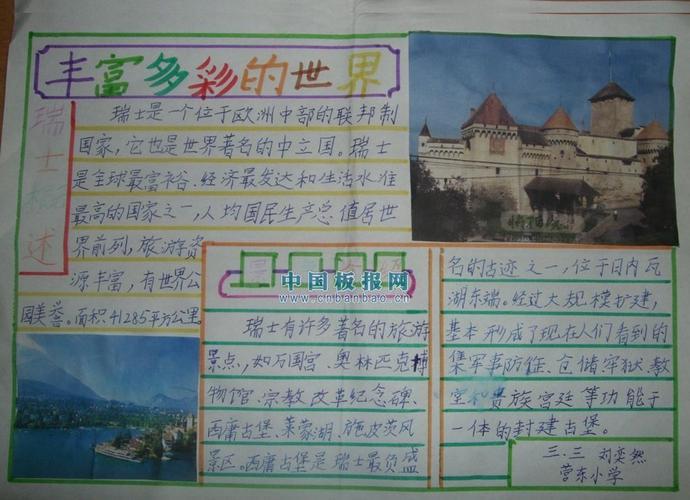 丰富多彩的世界
瑞士概述
瑞士是一个位于欧洲中部的联邦制
国家,它也是世界著名的中立国。瑞士
是全球最富裕、经济最发达和生活水准
最高的国家之一,人均国民生产总值居世
界前列,旅游资
源丰富,有世界公
园美誉。面积41285平方公里
中国板报网
www.cnbanbao.cn
瑞士有许多著名的旅游
景点,如万国宫、奥林匹克博
物馆、宗教改革纪念碑、
西庸古堡、莱蒙湖、施皮茨风
景区。西庸古堡是瑞士最负盛
名的古迹之一,位于日内瓦
湖东端。经过大规模扩建,
基本形成了现在人们看到的
集军事防御、仓储牢狱、教
堂和贵族宫廷等功能于
一体的封建古堡。
三.三 刘奕然
营东小学